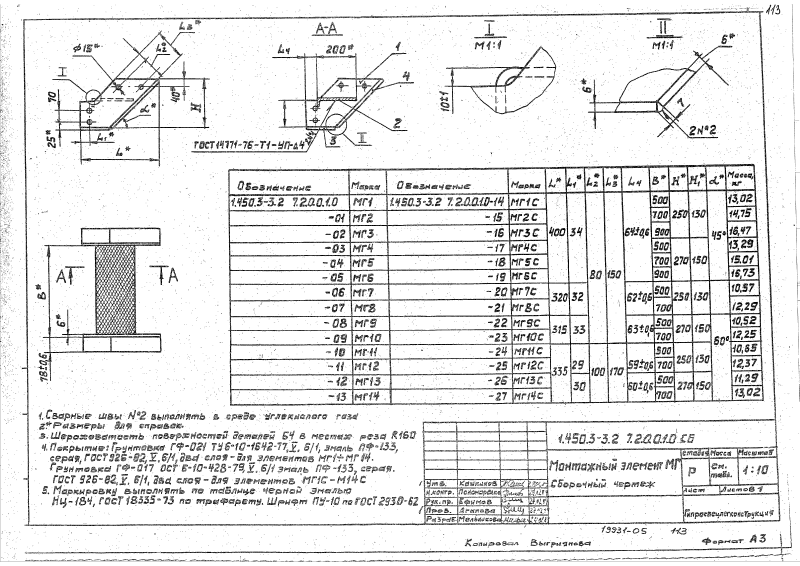 113
А-А
I
М1:1
II
М1:1
L3*
L2*
Ø18*
I
70
25*
L1*
L*
α*
40*
H
L4
200*
1
4
2
3
II
ГОСТ 14771-76-Т1-УП-Δ4
10±1
6*
6*
7
2 №2
Обозначение Марка Обозначение Марка L* L1* L2* L3* L4 B* H* H1* α* Масса, кг
1.450.3-3.2 7.2.0.0.1.0 МГ1 1.450.3-3.2 7.2.0.0.1.0-14 МГ1С 400 34 80 150 64±0,6 500 250 130 45° 13,02
-01 МГ2 -15 МГ2С 700 14,75
-02 МГ3 -16 МГ3С 900 16,47
-03 МГ4 -17 МГ4С 500 270 150 13,29
-04 МГ5 -18 МГ5С 700 15,01
-05 МГ6 -19 МГ6С 900 16,73
-06 МГ7 -20 МГ7С 320 32 62±0,6 500 250 130 10,57
-07 МГ8 -21 МГ8С 700 12,29
-08 МГ9 -22 МГ9С 315 33 63±0,6 500 270 150 60° 10,52
-09 МГ10 -23 МГ10С 700 12,25
-10 МГ11 -24 МГ11С 335 29 100 170 59±0,6 500 250 130 10,65
-11 МГ12 -25 МГ12С 700 12,37
-12 МГ13 -26 МГ13С 30 60±0,6 500 270 150 11,29
-13 МГ14 -27 МГ14С 700 13,02
A A
B*
6*
78±0,6
1. Сварные швы №2 выполнять в среде углекислого газа
2* Размеры для справок.
3. Шероховатость поверхностей деталей БЧ в местах реза R160
4. Покрытие: Грунтовка ГФ-021 ТУ6-10-1642-77, V, 6/1, эмаль ПФ-133,
серая, ГОСТ 926-82, V, 6/1, два слоя - для элементов МГ1÷МГ14.
Грунтовка ГФ-017 ОСТ 6-10-428-79, V, 6/1 эмаль ПФ-133, серая.
ГОСТ 926-82, V, 6/1, два слоя - для элементов МГ1С-М14С
5. Маркировку выполнять по таблице черной эмалью
НЦ-184, ГОСТ 18335-73 по трафарету. Шрифт ПУ-10 по ГОСТ 2930-62
1.450.3-3.2 7.2.0.0.1.0 СБ
Монтажный элемент МГ
Сборочный чертеж
Стадия Масса Масштаб
Р См. табл. 1:10
Лист Листов 1
Гипроспецлегконструкция
Утв. Кашников
Н.контр. Пономарева
Рук.пр. Ефимов
Пров. Агапова
Разраб. Мельникова
19931-05 113
Копировал Выгриянова Формат А3